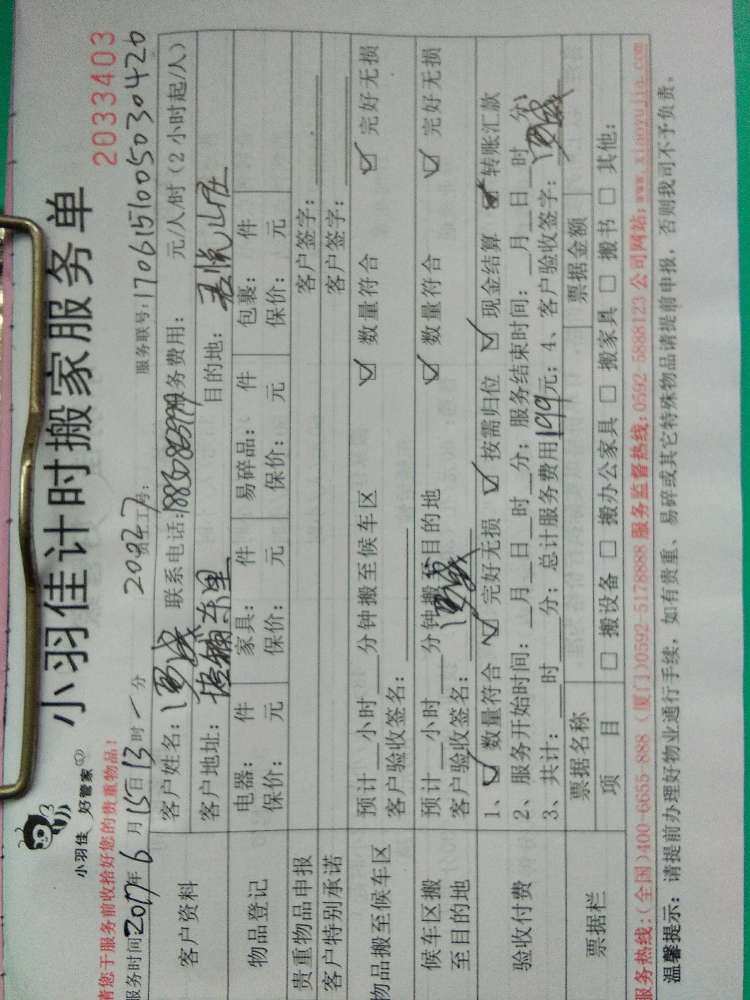 小羽佳 好管家
小羽佳计时搬家服务单
2033403
请您于服务前收拾好您的贵重物品!
服务时间2017年6月15日13时 分 员工工号: 20827 服务联号:1706151005030420
客户资料
客户姓名: 联系电话: 服务费用: 元/人/时(2小时起/人)
客户地址: 东里 目的地: 君悦山庄
物品登记
电器: 件 家具: 件 易碎品: 件 包裹: 件
保价: 元 保价: 元 保价: 元 保价: 元
贵重物品申报 客户签字:
客户特别承诺 客户签字:
物品搬至候车区
预计__小时__分钟搬至候车区 ☑ 数量符合 ☑ 完好无损
客户验收签名:
候车区搬至目的地
预计__小时__分钟搬至目的地 ☑ 数量符合 ☑ 完好无损
客户验收签名:
验收付费
1、☑ 数量符合 ☑ 完好无损 ☑ 按需归位 ☑ 现金结算 ☑ 转账汇款
2、服务开始时间: __月__日__时__分; 服务结束时间: __月__日__时__分
3、共计: __时__分; 总计服务费用199元; 4、客户验收签字:
票据栏
票据名称 票据金额
项 目 □ 搬设备 □ 搬办公家具 □ 搬家具 □ 搬书 □ 其他:
服务热线:(全国)400-6655-888 (厦门)0592-5178888 服务监督热线:0592-5888123 公司网站:www.xiaoyujia.com
温馨提示: 请提前办理好物业通行手续, 如有贵重、易碎或其它特殊物品请提前申报, 否则我司不予负责。